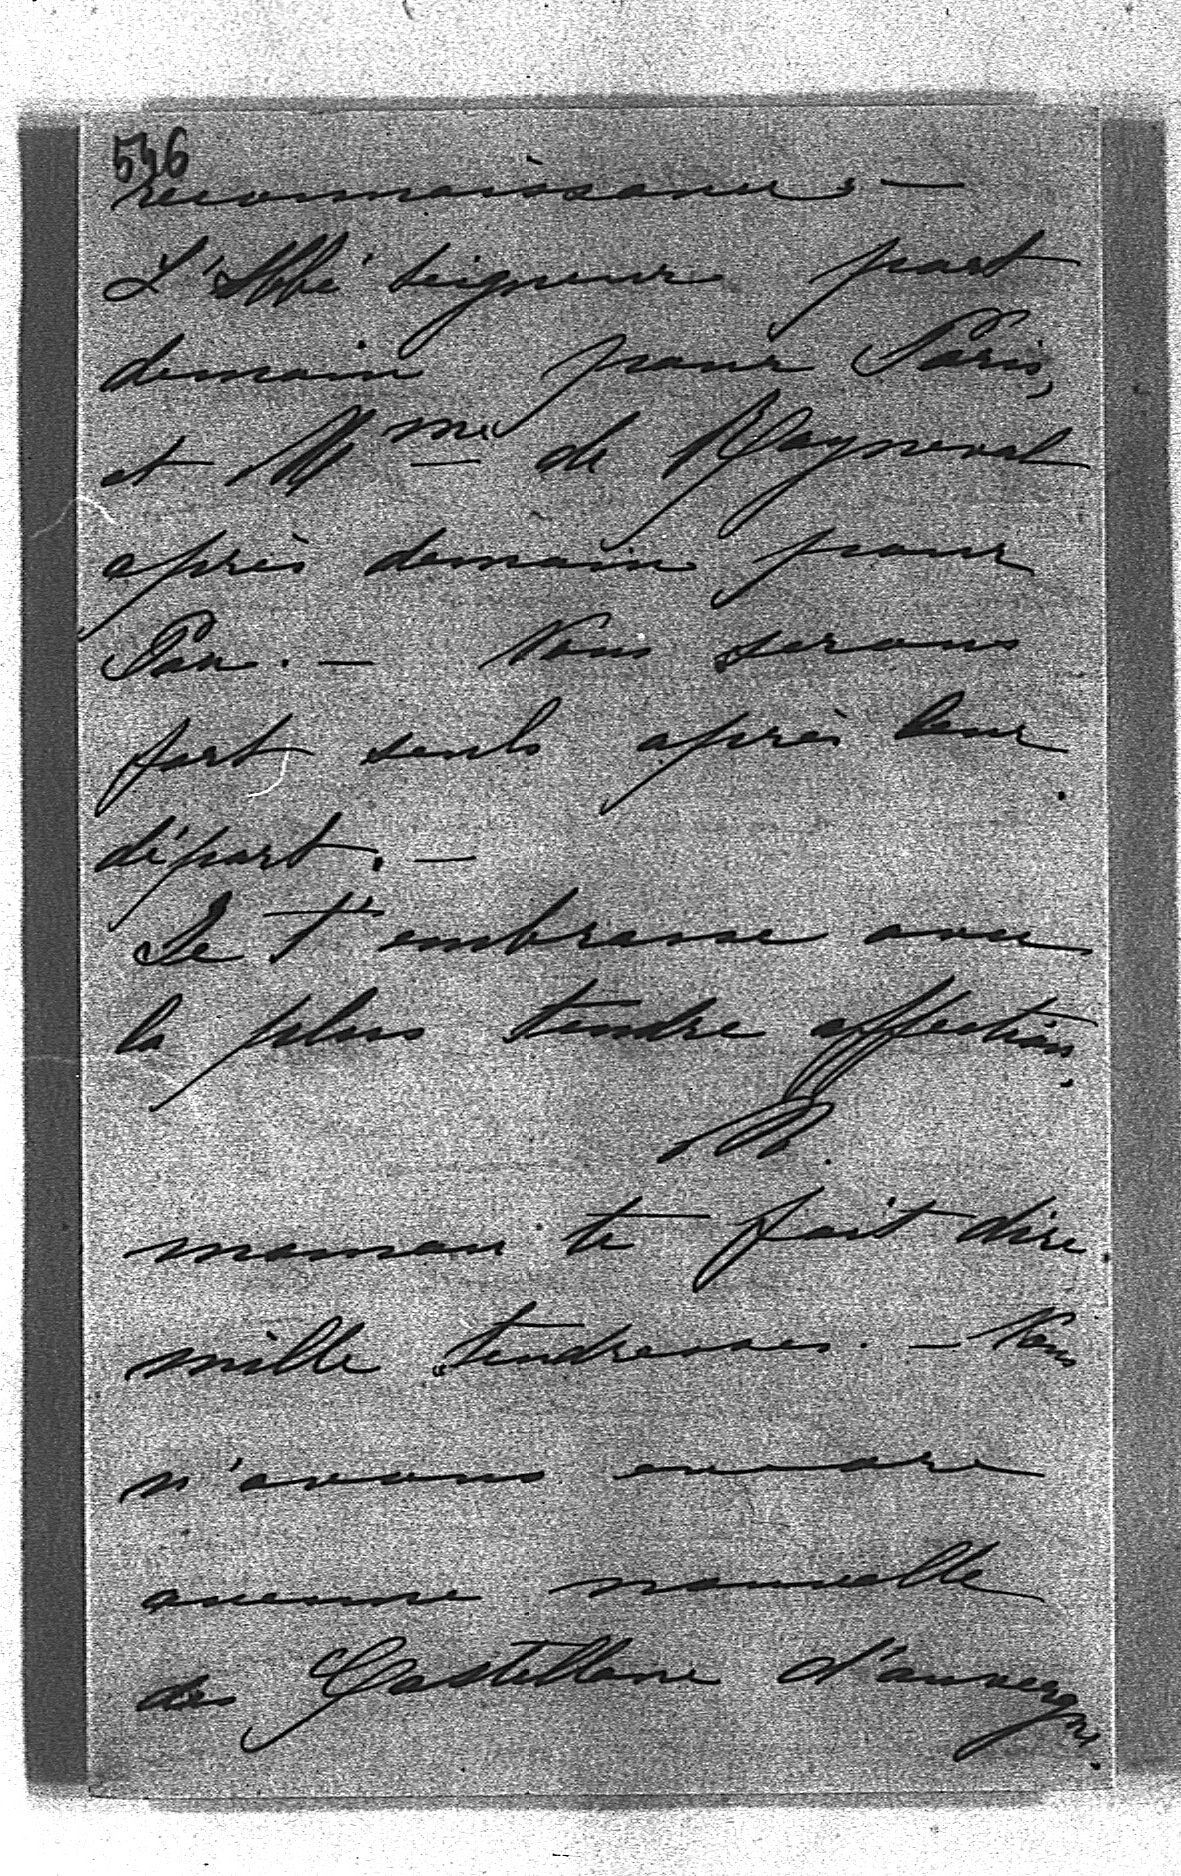 546
reconnaissance. —
L'Abbé Seigneur part
demain pour Paris,
et Mme de Rayneval
après demain pour
Pau. — Nous serons
fort seuls après leur
départ. —
Je t'embrasse avec
la plus tendre affection.
maman te fait dire
mille tendresses. — Nous
n'avons encore
aucune nouvelle
des Castellane d'auvergne.